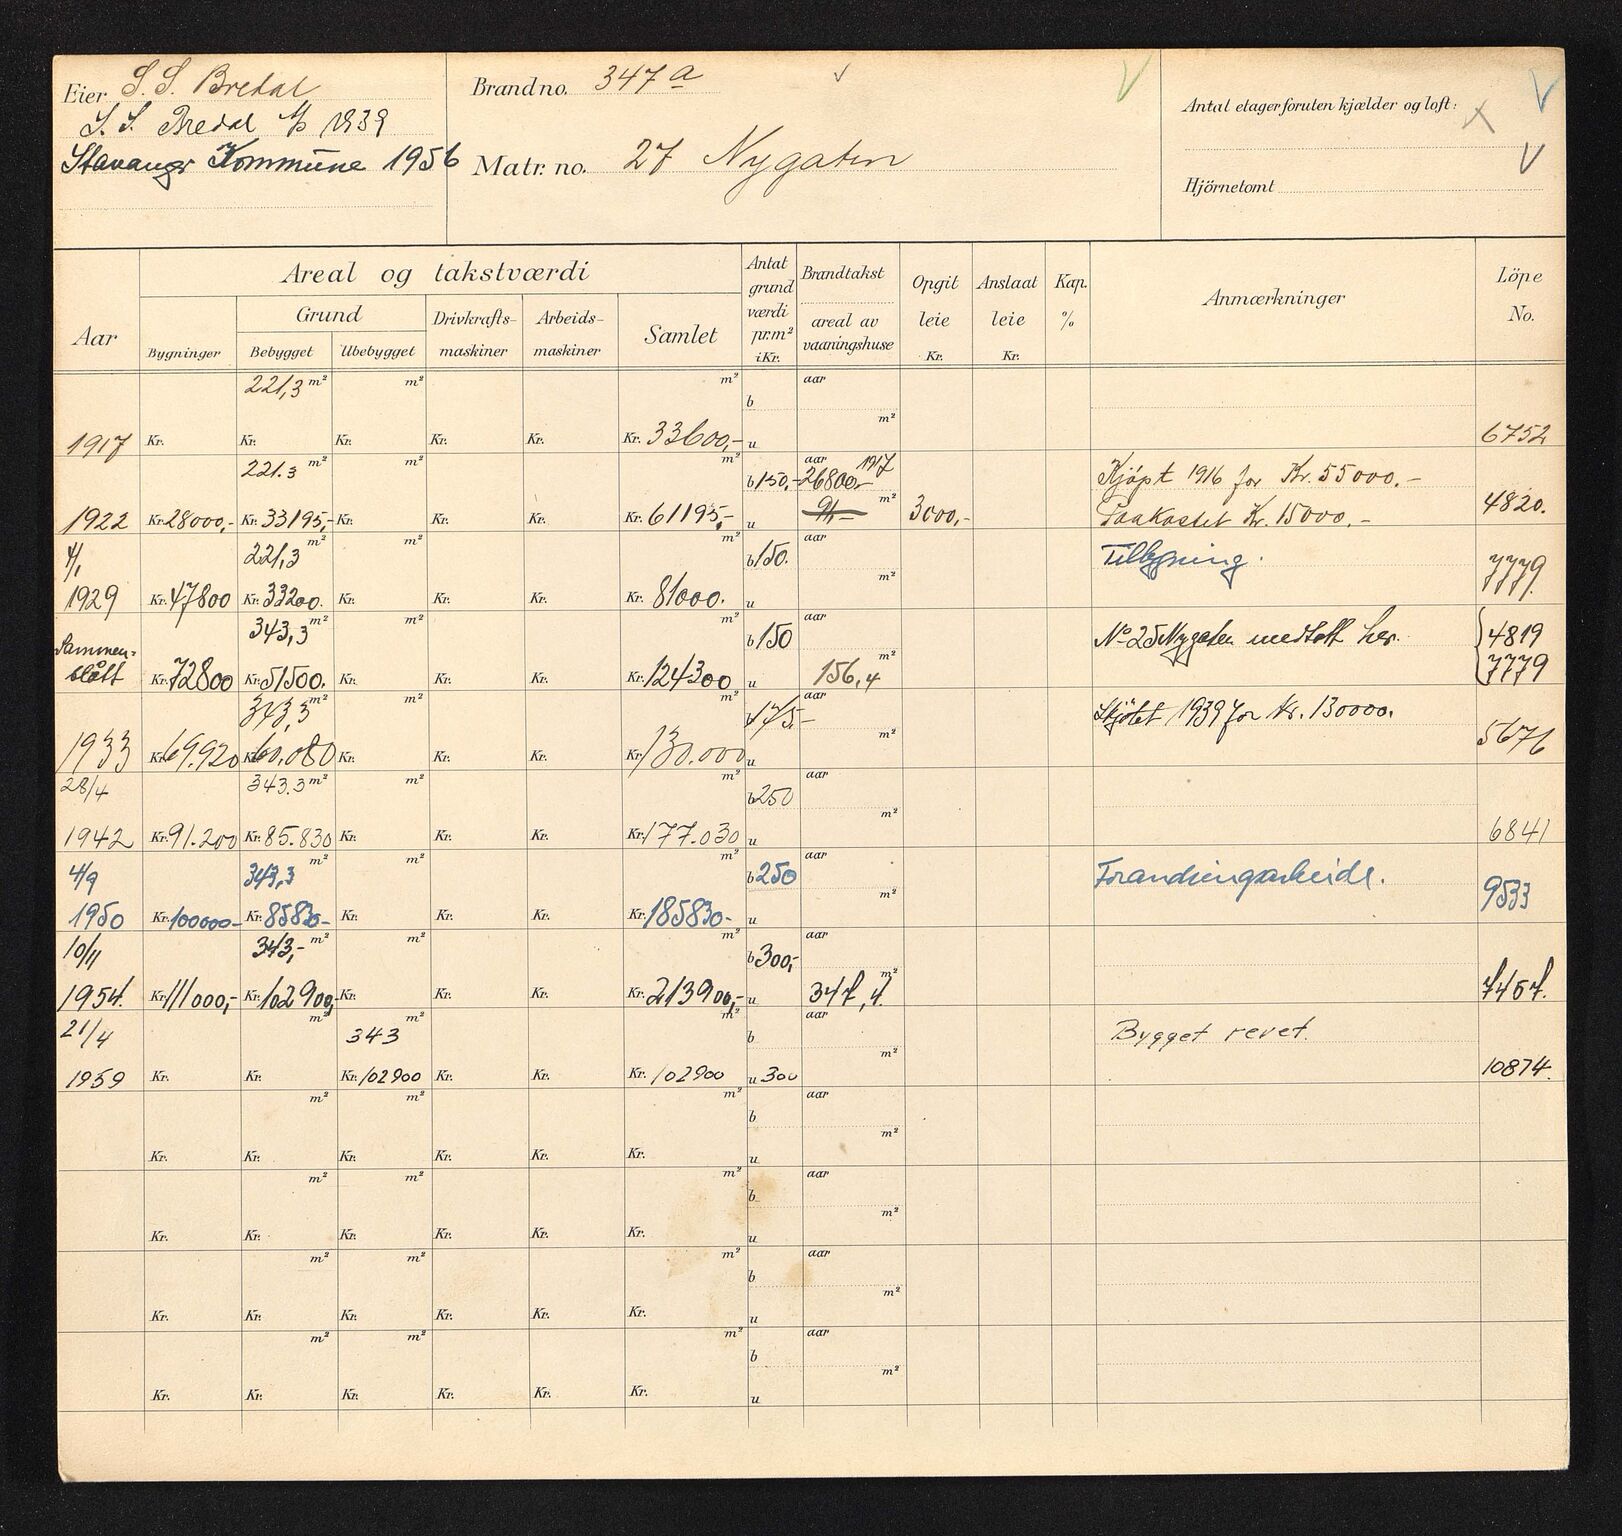 Eier S. S. Bredal
S. S. Bredal A/S 1939
Stavanger Kommune 1956
Brandno. 347 a
Matr. no. 27 Nygaten
Antal etager foruten kjælder og loft:
Hjörnetomt
Aar
Areal og takstværdi
Bygninger
Grund
Bebygget Ubebygget
Drivkrafts-
maskiner
Arbeids-
maskiner
Samlet
Antat
grund
værdi
pr. m²
i Kr.
Brandtakst
areal av
vaaningshuse
Opgit
leie
Kr.
Anslaat
leie
Kr.
Kap.
%
Anmærkninger
Löpe
No.
221,3 m² m² m² b aar
m²
1917 Kr. Kr. Kr. Kr. Kr. Kr. 33600,- u 6752
221.3 m² m² m² b 150,- aar 1917
26800,- Kjøpt 1916 for Kr. 55000.-
m²
1922 Kr. 28000,- Kr. 33195,- Kr. Kr. Kr. Kr. 61195,- u 3000,- Paakostet Kr. 15000.- 4820.
4/1 221,3 m² m² m² b 150. aar Tilbygning.
m²
1929 Kr. 47800 Kr. 33200. Kr. Kr. Kr. Kr. 81000. u 7779.
Sammen-
slått 343,3 m² m² m² b 150 aar No 25 Nygaten medtatt her. 4819
Kr. 72800 Kr. 51500. Kr. Kr. Kr. Kr. 124300 u 156,4 m² 7779
343,3 m² m² m² b 175,- aar Skjøtet 1939 for kr. 130000.
m²
1933 Kr. 69.920 Kr. 60.080 Kr. Kr. Kr. Kr. 130.000 u 5676
28/4 343.3 m² m² m² b 250 aar
m²
1942 Kr. 91.200 Kr. 85.830 Kr. Kr. Kr. Kr. 177.030 u 6841
4/9 343,3 m² m² m² b 250 aar Forandringsarbeide.
m²
1950 Kr. 100000- Kr. 85830- Kr. Kr. Kr. Kr. 185830- u 9533
10/11 343,- m² m² m² b 300,- aar
1954. Kr. 111000,- Kr. 102900,- Kr. Kr. Kr. Kr. 213900,- u 347,4 m² 7457.
21/4 m² 343 m² m² b aar Bygget revet.
m²
1959 Kr. Kr. Kr. 102900 Kr. Kr. Kr. 102900 u 300 10874.
m² m² m² b aar
m²
Kr. Kr. Kr. Kr. Kr. Kr. u
m² m² m² b aar
m²
Kr. Kr. Kr. Kr. Kr. Kr. u
m² m² m² b aar
m²
Kr. Kr. Kr. Kr. Kr. Kr. u
m² m² m² b aar
m²
Kr. Kr. Kr. Kr. Kr. Kr. u